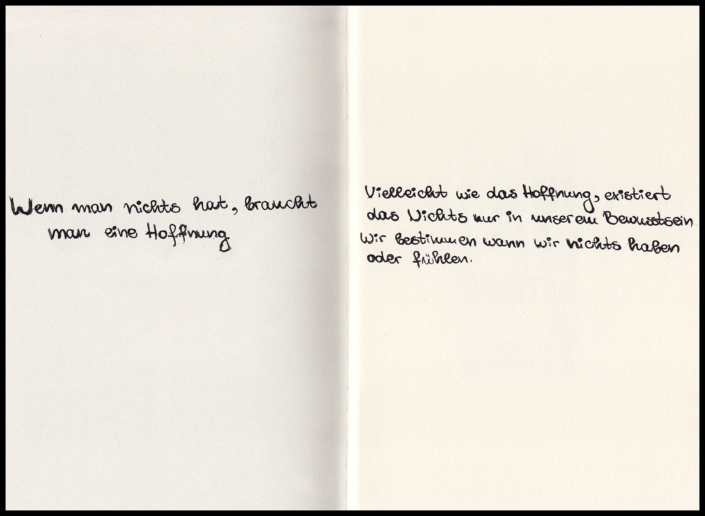 Wenn man nichts hat, braucht
man eine Hoffnung
Vielleicht wie das Hoffnung, existiert
das Nichts nur in unserem Bewusstsein
Wir bestimmen wann wir nichts haben
oder frühlen.